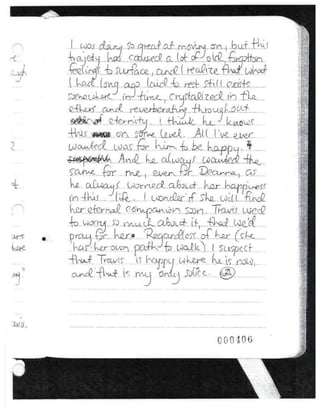 I was doing so great at moving on, but this
trajedy has caused a lot of old forgotten
feelings to surface, and I realize that what
I had long ago laid to rest still exists
somewhere in time, crystalized in the
ethers and reverberating throughout
eternity. I think he knows
this on some level. All I've ever
wanted was for him to be happy.
And he always wanted the
same for me, even for Deanne, as
he always worried about her happiness
in this life. I wonder if she will find
her eternal companion soon. Travis used
to worry so much about it, that we'd
pray for her. Regardless of her (she
has her own path to walk) I suspect
that Travis is happy where he is now,
and that is my only solice.
000406